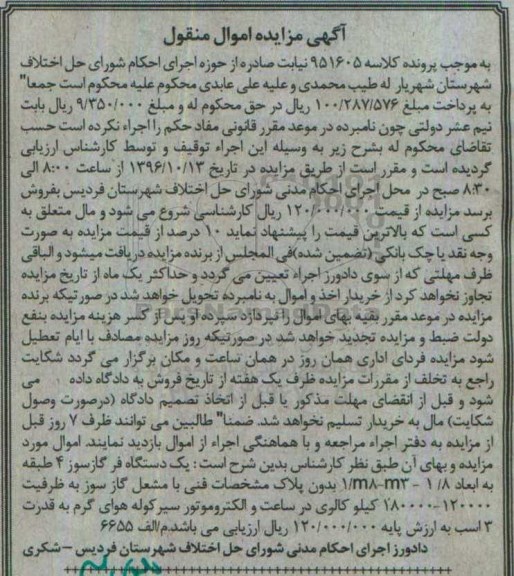 آگهی مزایده اموال منقول
به موجب پرونده کلاسه ۹۵۱۶۰۵ نیابت صادره از حوزه اجرای احکام شورای حل اختلاف
شهرستان شهریار له طیب محمدی و علیه علی عابدی محکوم علیه محکوم است جمعا"
به پرداخت مبلغ ۱۰۰/۲۸۷/۵۷۶ ریال در حق محکوم له و مبلغ ۹/۳۵۰/۰۰۰ ریال بابت
نیم عشر دولتی چون نامبرده در موعد مقرر قانونی مفاد حکم را اجراء نکرده است حسب
تقاضای محکوم له بشرح زیر به وسیله این اجراء توقیف و توسط کارشناس ارزیابی
گردیده است و مقرر است از طریق مزایده در تاریخ ۱۳۹۶/۱۰/۱۳ از ساعت ۸:۰۰ الی
۸:۳۰ صبح در محل اجرای احکام مدنی شورای حل اختلاف شهرستان فردیس بفروش
برسد مزایده از قیمت ۱۲۰/۰۰۰/۰۰۰ ریال کارشناسی شروع می شود و مال متعلق به
کسی است که بالاترین قیمت را پیشنهاد نماید ۱۰ درصد از قیمت مزایده به صورت
وجه نقد یا چک بانکی (تضمین شده) فی المجلس از برنده مزایده دریافت میشود و الباقی
ظرف مهلتی که از سوی دادورز اجراء تعیین می گردد و حداکثر یک ماه از تاریخ مزایده
تجاوز نخواهد کرد از خریدار اخذ و اموال به نامبرده تحویل خواهد شد در صورتیکه برنده
مزایده در موعد مقرر بقیه بهای اموال را نپردازد سپرده او پس از کسر هزینه مزایده بنفع
دولت ضبط و مزایده تجدید خواهد شد در صورتیکه روز مزایده مصادف با ایام تعطیل
شود مزایده فردای اداری همان روز در همان ساعت و مکان برگزار می گردد شکایت
راجع به تخلف از مقررات مزایده ظرف یک هفته از تاریخ فروش به دادگاه داده می
شود و قبل از انقضای مهلت مذکور یا قبل از اتخاذ تصمیم دادگاه (درصورت وصول
شکایت) مال به خریدار تسلیم نخواهد شد. ضمنا" طالبین می توانند ظرف ۷ روز قبل
از مزایده به دفتر اجراء مراجعه و با هماهنگی اجراء از اموال بازدید نمایند. اموال مورد
مزایده و بهای آن طبق نظر کارشناس بدین شرح است: یک دستگاه فر گازسوز ۴ طبقه
به ابعاد ۱/۸ - ۱/m۸-m۳ بدون پلاک مشخصات فنی با مشعل گاز سوز به ظرفیت
۱۲۰۰۰۰-۱۸۰۰۰۰ کیلو کالری در ساعت و الکتروموتور سیرکوله هوای گرم به قدرت
۳ اسب به ارزش پایه ۱۲۰/۰۰۰/۰۰۰ ریال ارزیابی می باشد.م/الف ۶۶۵۵
دادورز اجرای احکام مدنی شورای حل اختلاف شهرستان فردیس – شکری